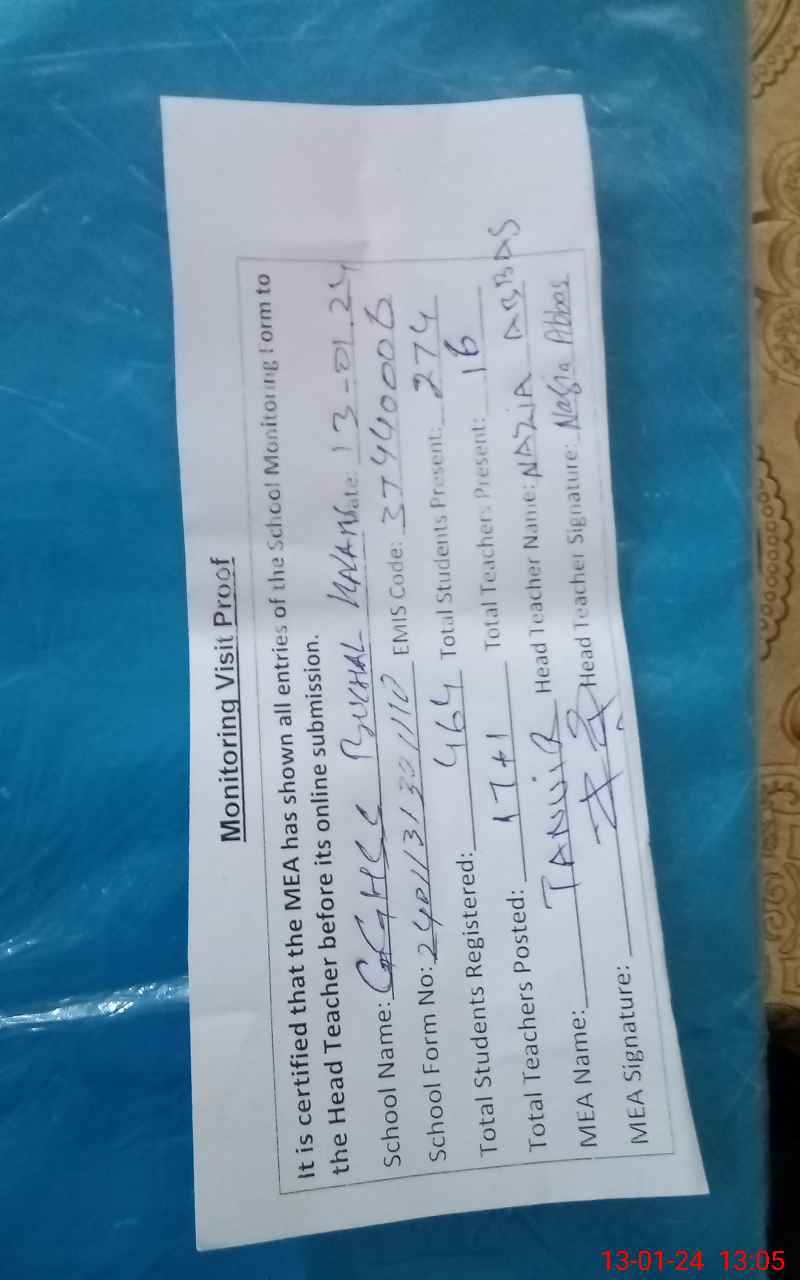 Monitoring Visit Proof
It is certified that the MEA has shown all entries of the School Monitoring Form to
the Head Teacher before its online submission.
School Name: GGHSS BUCHAL KALAN Date: 13-01.24
School Form No: EMIS Code: 37440006
Total Students Registered: 464 Total Students Present: 274
Total Teachers Posted: 17+1 Total Teachers Present: 16
MEA Name: TANWIR Head Teacher Name: NAZIA ABBAS
MEA Signature: Head Teacher Signature: Nazia Abbas
13-01-24 13:05